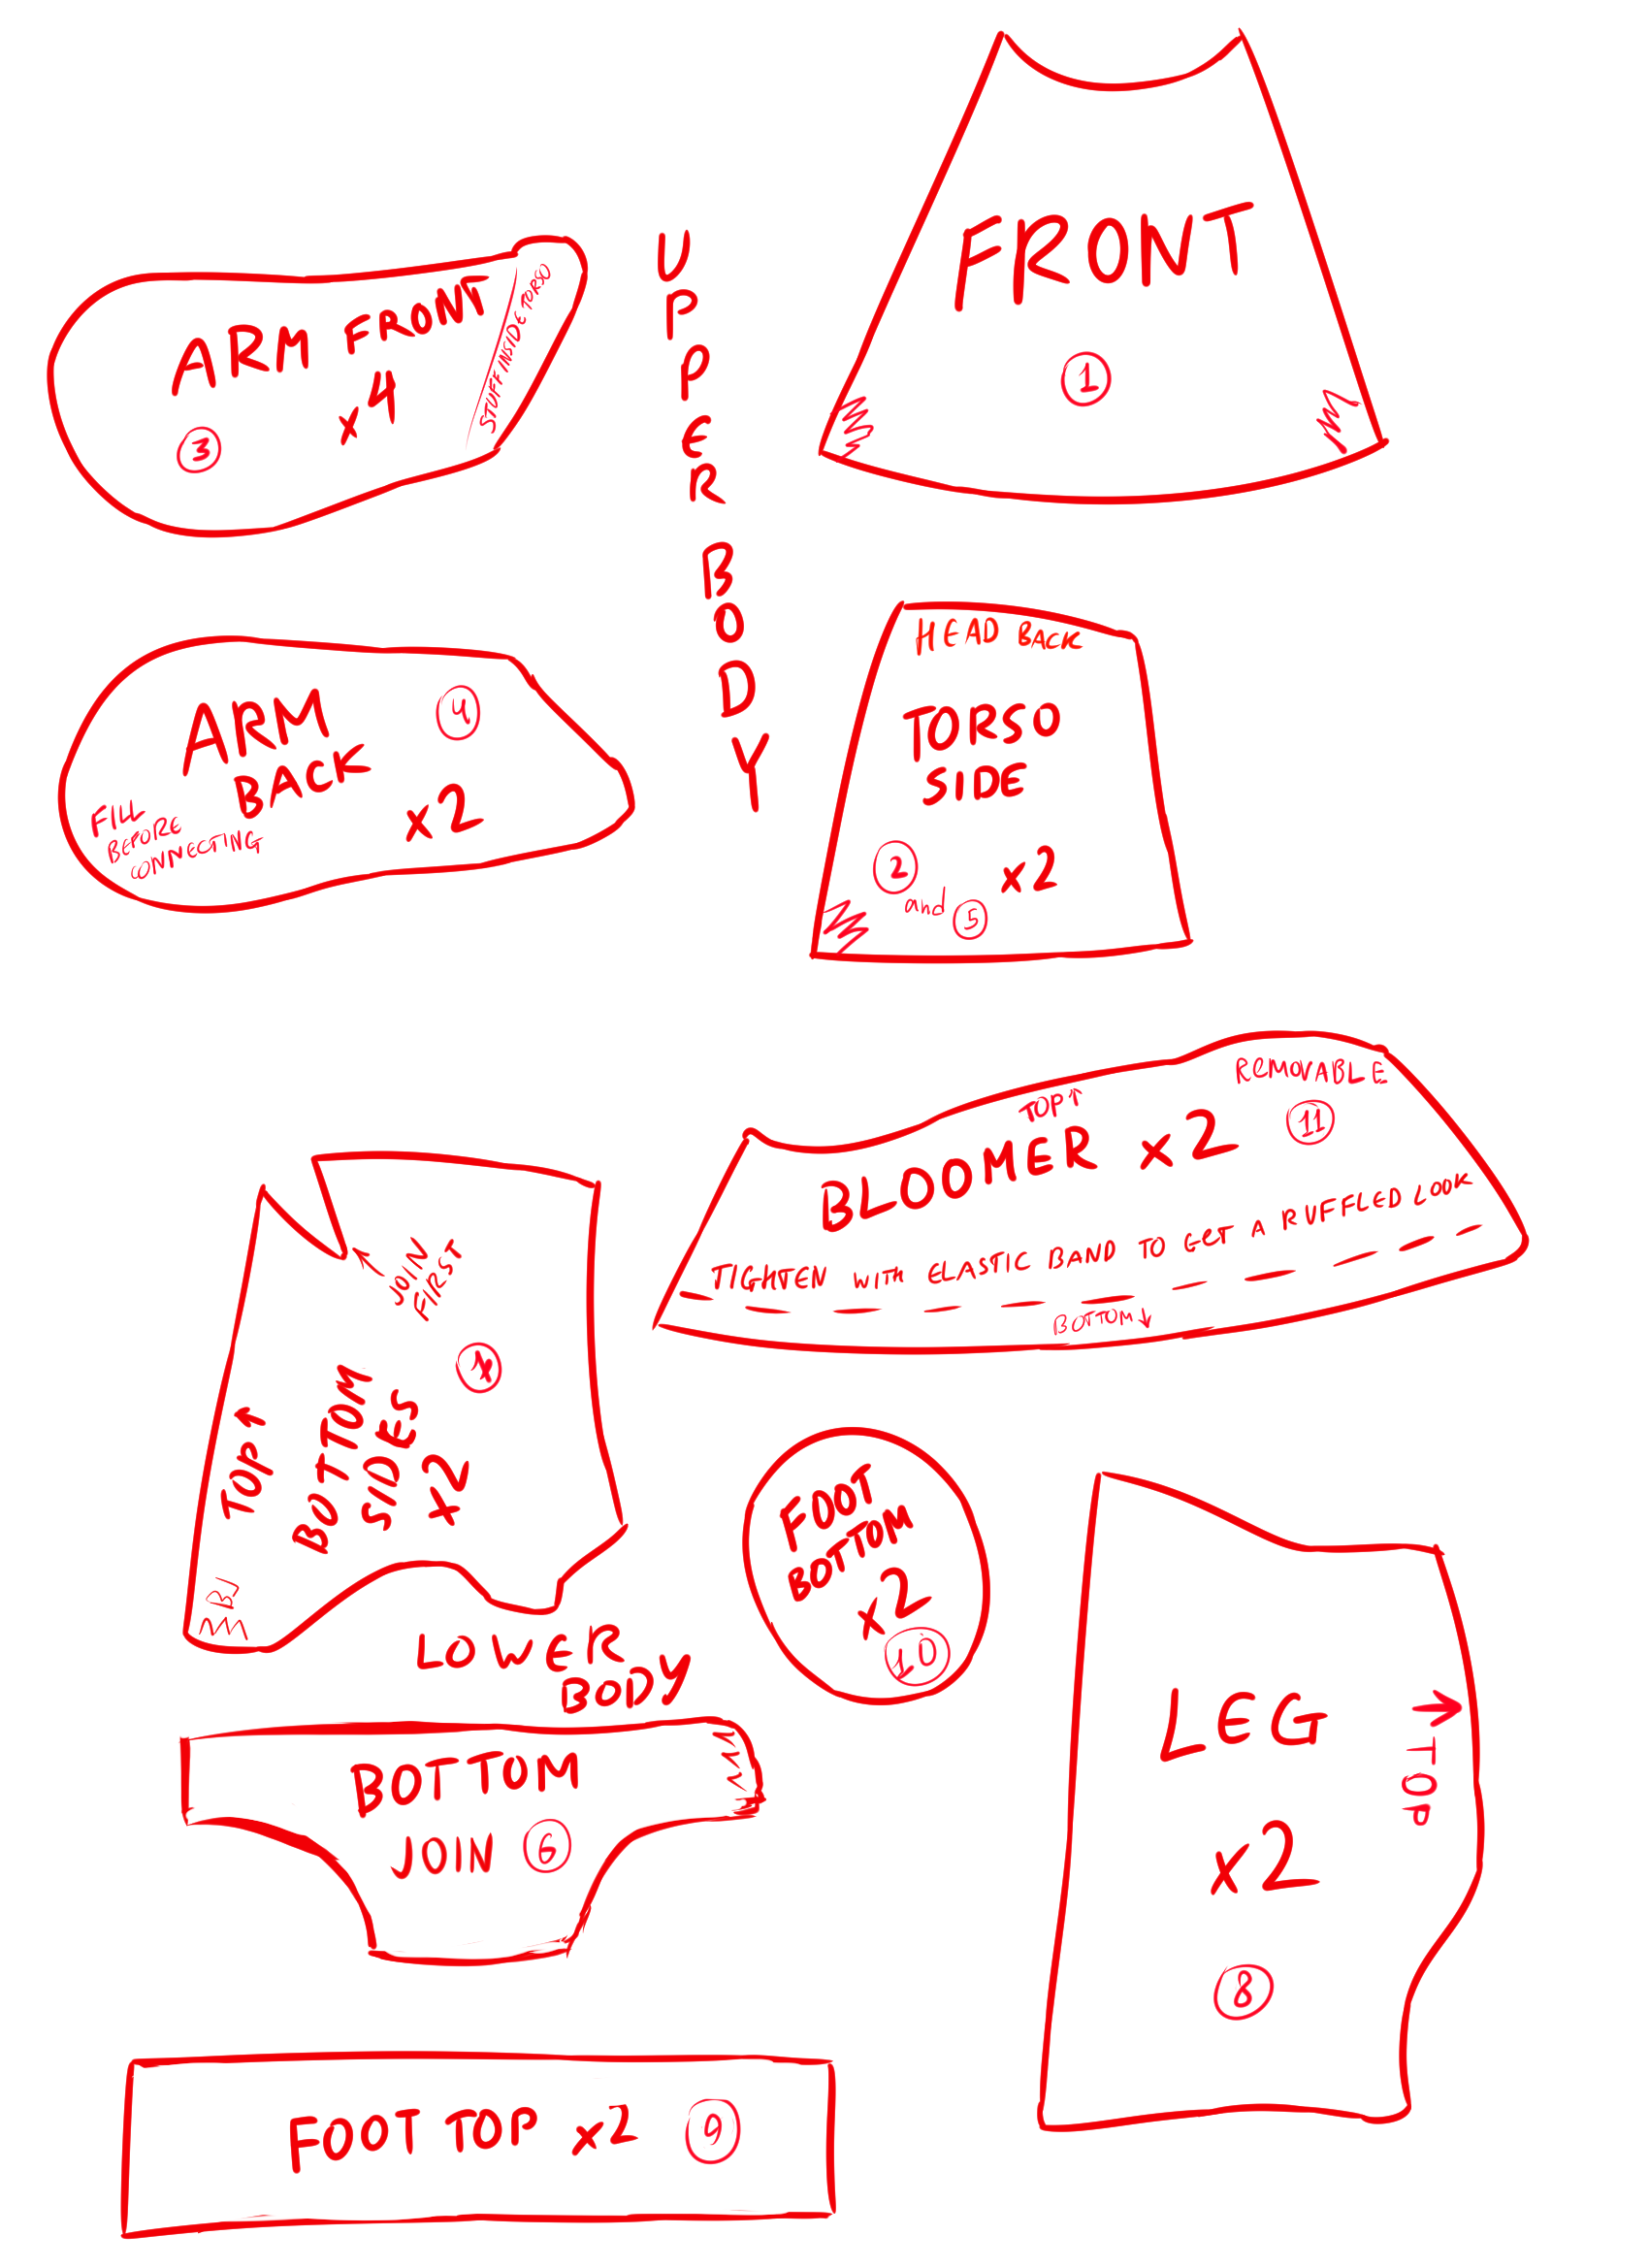 FRONT
1
ARM FRONT
x4
3
STUFF INSIDE TORSO
UPPER BODY
ARM
BACK
4
x2
FILL
BEFORE
CONNECTING
HEAD BACK
TORSO
SIDE
2
and 5
x2
REMOVABLE
TOP↑
BLOOMER x2
11
TIGHTEN WITH ELASTIC BAND TO GET A RUFFLED LOOK
BOTTOM↓
JOIN
FIRST
TOP↑
BOTTOM
SIDES
x2
LOWER
BODY
FOOT
BOTTOM
x2
10
LEG
x2
8
↑TOP
BOTTOM
JOIN 6
FOOT TOP x2 9